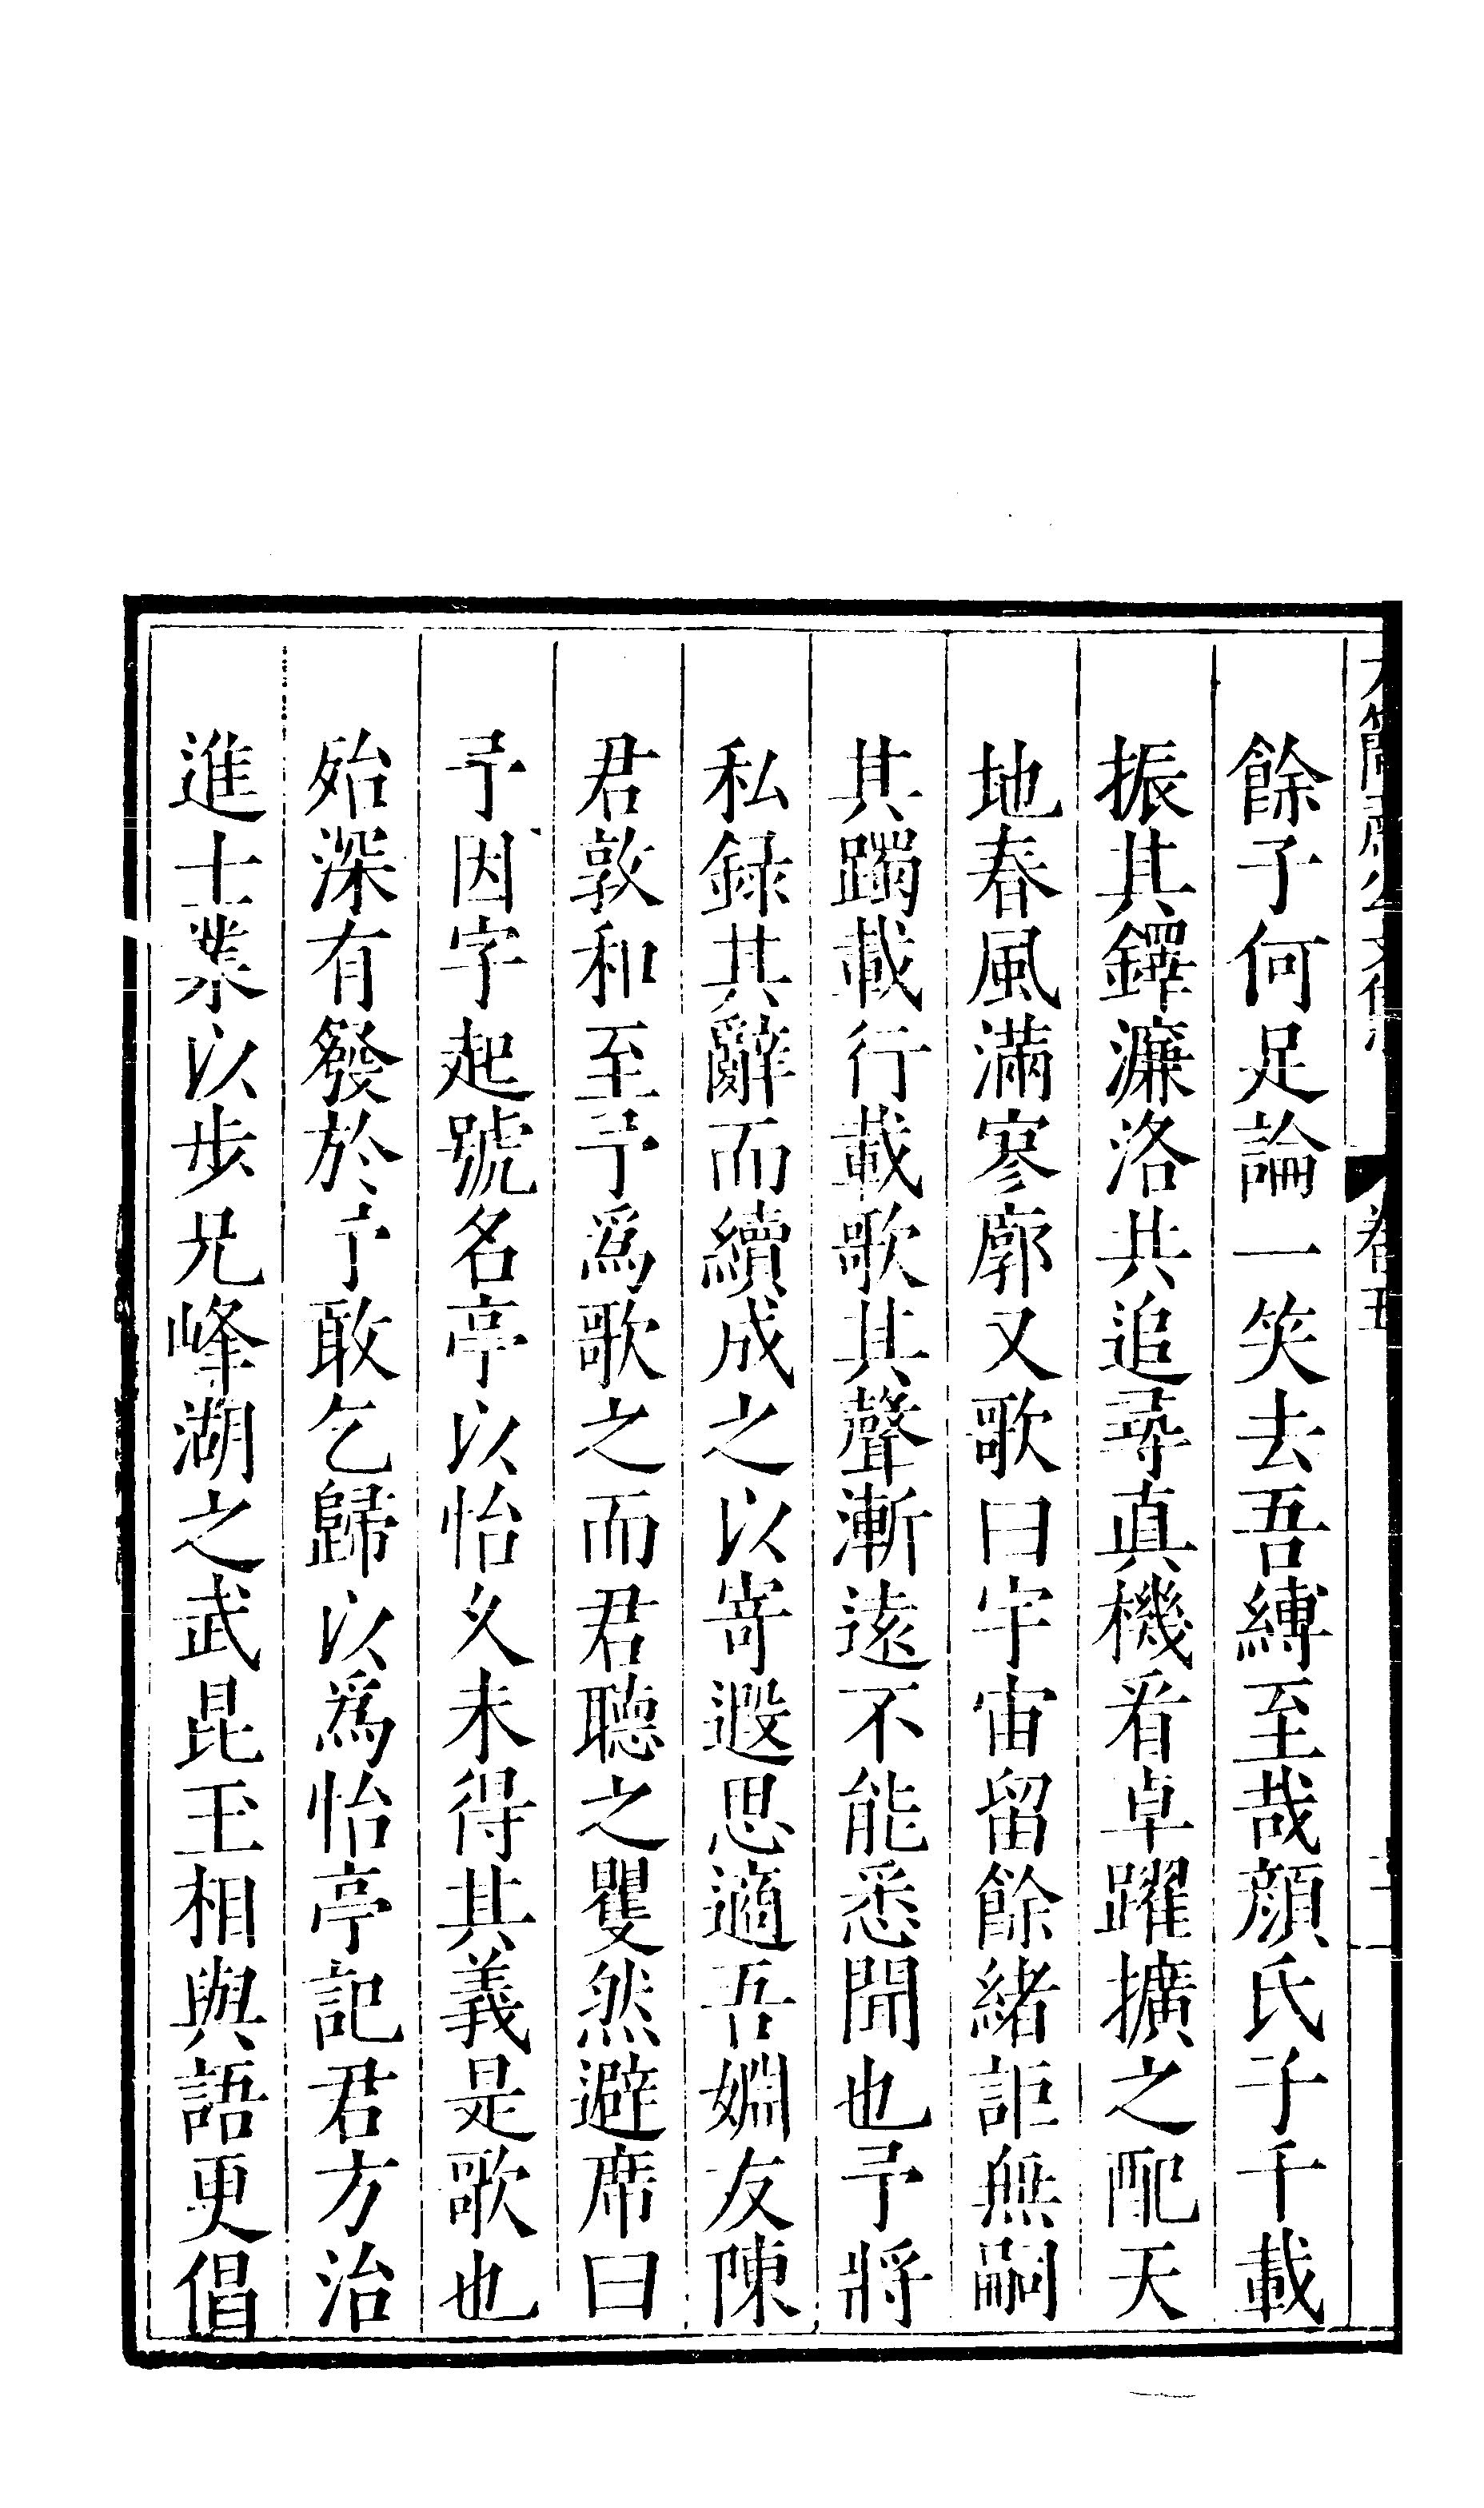 餘子何足論一笑去吾縛至哉顏氏子千載
振其鐸濂洛共追尋真機看卓躍擴之配天
地春風滿寥廓又歌曰宇宙留餘緒詎無嗣
其躅載行載歌其聲漸遠不能悉聞也予將
私録其辭而續成之以寄遐思適吾婣友陳
君敦和至予爲歌之而君聽之瞿然避席曰
予因字起號名亭以怡久未得其義是歌也
殆深有發於予敢乞歸以爲怡亭記君方治
進士業以步兄峰湖之武昆玉相與語更倡
卷五